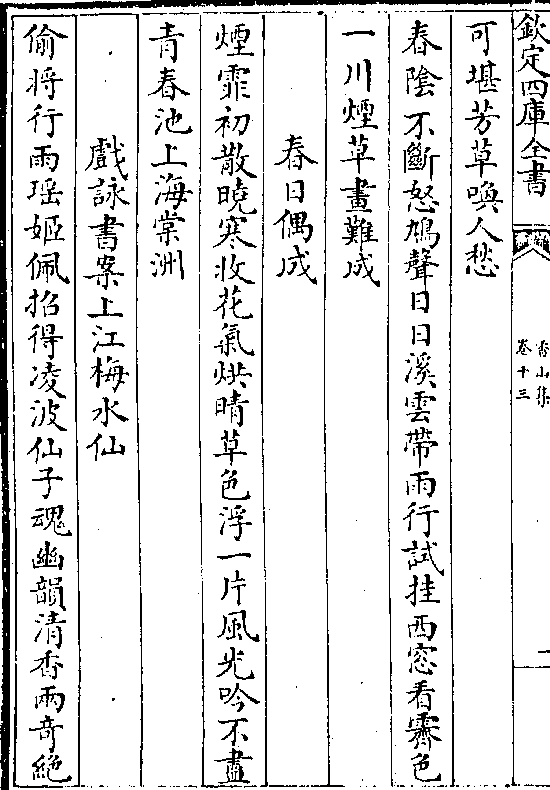 欽定四庫全書
香山集
卷十三
一
可堪芳草喚人愁
春陰不斷怒鳩聲日日溪雲帶雨行試挂西窓看霽色
一川煙草畫難成
春日偶成
煙霏初散曉寒收花氣烘晴草色浮一片風光吟不盡
青春池上海棠洲
戲詠書案上江梅水仙
偷將行雨瑶姬佩招得凌波仙子魂幽韻清香兩竒絶